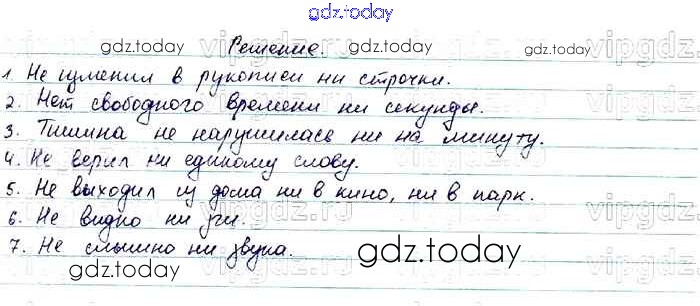 gdz.today
Решение.
gdz.today gdz.today
1. Не изменил в рукописи ни строчки.
2. Нет свободного времени ни секунды.
3. Тишина не нарушилась ни на минуту.
4. Не верил ни единому слову.
5. Не выходил из дома ни в кино, ни в парк.
6. Не видно ни зги.
7. Не слышно ни звука.
gdz.today
gdz.today